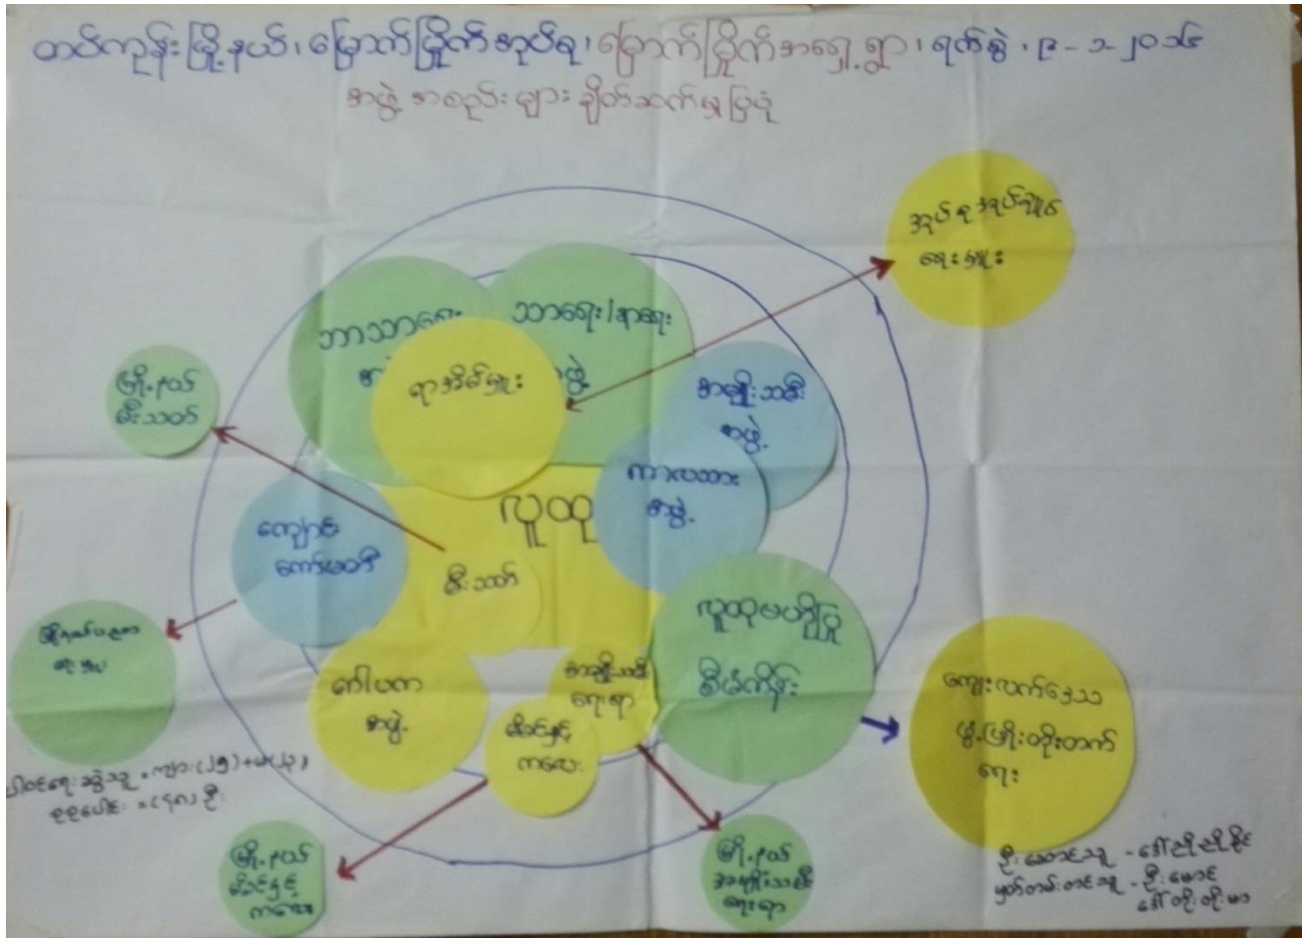 တပ်ကုန်းမြို့နယ်၊ မြောက်မြိုက်အုပ်စု၊ မြောက်မြိုက်အရှေ့ရွာ၊ ရက်စွဲ၊ ၉-၁-၂၀၁၆
အဖွဲ့အစည်းများ ချိတ်ဆက်မှုပြပုံ
အုပ်စုအုပ်ချုပ်
ရေးမှူး
ဘာသာရေး
သာရေး/နာရေး
အဖွဲ့
ရာအိမ်မှူး
မြို့နယ်
မီးသတ်
အမျိုးသမီး
အဖွဲ့
ကာလသား
အဖွဲ့
လူထု
ကျောင်း
ကော်မတီ
မီးသတ်
လူထုဗဟိုပြု
စီမံကိန်း
မြို့နယ်ပညာ
ရေးမှူး
ဂေါပက
အဖွဲ့
အမျိုးသမီး
ရေးရာ
မိခင်နှင့်
ကလေး
ကျေးလက်ဒေသ
ဖွံ့ဖြိုးတိုးတက်
ရေး
ပါဝင်ရေးဆွဲသူ
စုစုပေါင်း
မြို့နယ်
မိခင်နှင့်
ကလေး
မြို့နယ်
အမျိုးသမီး
ရေးရာ
ဦးဆောင်သူ - ဒေါ်
မှတ်တမ်းတင်သူ - ဦးမောင်
ဒေါ်တိုးတိုးမာ